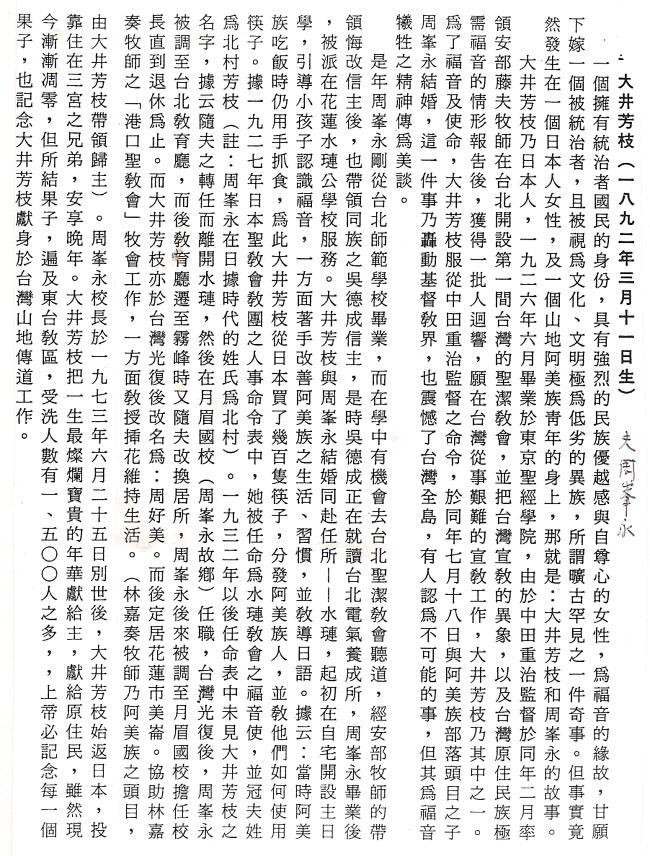 大井芳枝(一八九二年三月十一日生)
夫周峯永
一個擁有統治者國民的身份,具有強烈的民族優越感與自尊心的女性,爲福音的緣故,甘願
下嫁一個被統治者,且被視爲文化、文明極爲低劣的異族,所謂曠古罕見之一件奇事。但事實竟
然發生在一個日本人女性,及一個山地阿美族靑年的身上,那就是:大井芳枝和周峯永的故事。
大井芳枝乃日本人,一九二六年六月畢業於東京聖經學院,由於中田重治監督於同年二月率
領安部藤夫牧師在台北開設第一間台灣的聖潔敎會,並把台灣宣敎的異象,以及台灣原住民族極
需福音的情形報告後,獲得一批人迴響,願在台灣從事艱難的宣敎工作,大井芳枝乃其中之一。
爲了福音及使命,大井芳枝服從中田重治監督之命令,於同年七月十八日與阿美族部落頭目之子
周峯永結婚,這一件事乃轟動基督敎界,也震憾了台灣全島,有人認爲不可能的事,但其爲福音
犧牲之精神傳爲美談。
是年周峯永剛從台北師範學校畢業,而在學中有機會去台北聖潔敎會聽道,經安部牧師的帶
領悔改信主後,也帶領同族之吳德成信主,是時吳德成正在就讀台北電氣養成所,周峯永畢業後
,被派在花蓮水璉公學校服務。大井芳枝與周峯永結婚同赴任所——水璉,起初在自宅開設主日
學,引導小孩子認識福音,一方面著手改善阿美族之生活、習慣,並敎導日語。據云:當時阿美
族吃飯時仍用手抓食,爲此大井芳枝從日本買了幾百隻筷子,分發阿美族人,並敎他們如何使用
筷子。據一九二七年日本聖敎會敎團之人事命令表中,她被任命爲水璉敎會之福音使,並冠夫姓
爲北村芳枝(註:周峯永在日據時代的姓氏爲北村)。一九三二年以後任命表中未見大井芳枝之
名字,據云隨夫之轉任而離開水璉,然後在月眉國校(周峯永故鄕)任職,台灣光復後,周峯永
被調至台北敎育廳,而後敎育廳遷至霧峰時又隨夫改換居所,周峯永後來被調至月眉國校擔任校
長直到退休爲止。而大井芳枝亦於台灣光復後改名爲:周好美。而後定居花蓮市美崙。協助林嘉
奏牧師之「港口聖敎會」牧會工作,一方面敎授揷花維持生活。(林嘉奏牧師乃阿美族之頭目,
由大井芳枝帶領歸主)。周峯永校長於一九七三年六月二十五日別世後,大井芳枝始返日本,投
靠住在三宮之兄弟,安享晚年。大井芳枝把一生最燦爛寶貴的年華獻給主,獻給原住民,雖然現
今漸漸凋零,但所結果子,遍及東台敎區,受洗人數有一、五〇〇人之多,,上帝必記念每一個
果子,也記念大井芳枝獻身於台灣山地傳道工作。